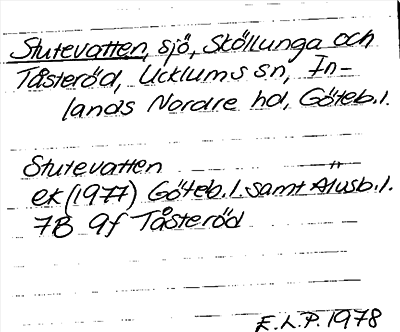 Stutevatten, sjö, Sköllunga och
Tåsteröd, Ucklums sn, In-
lands Nordre hd, Göteb.l.
Stutevatten
ek (1977) Göteb.l. samt Älvsb.l.
7B 9f Tåsteröd
E.L.P. 1978